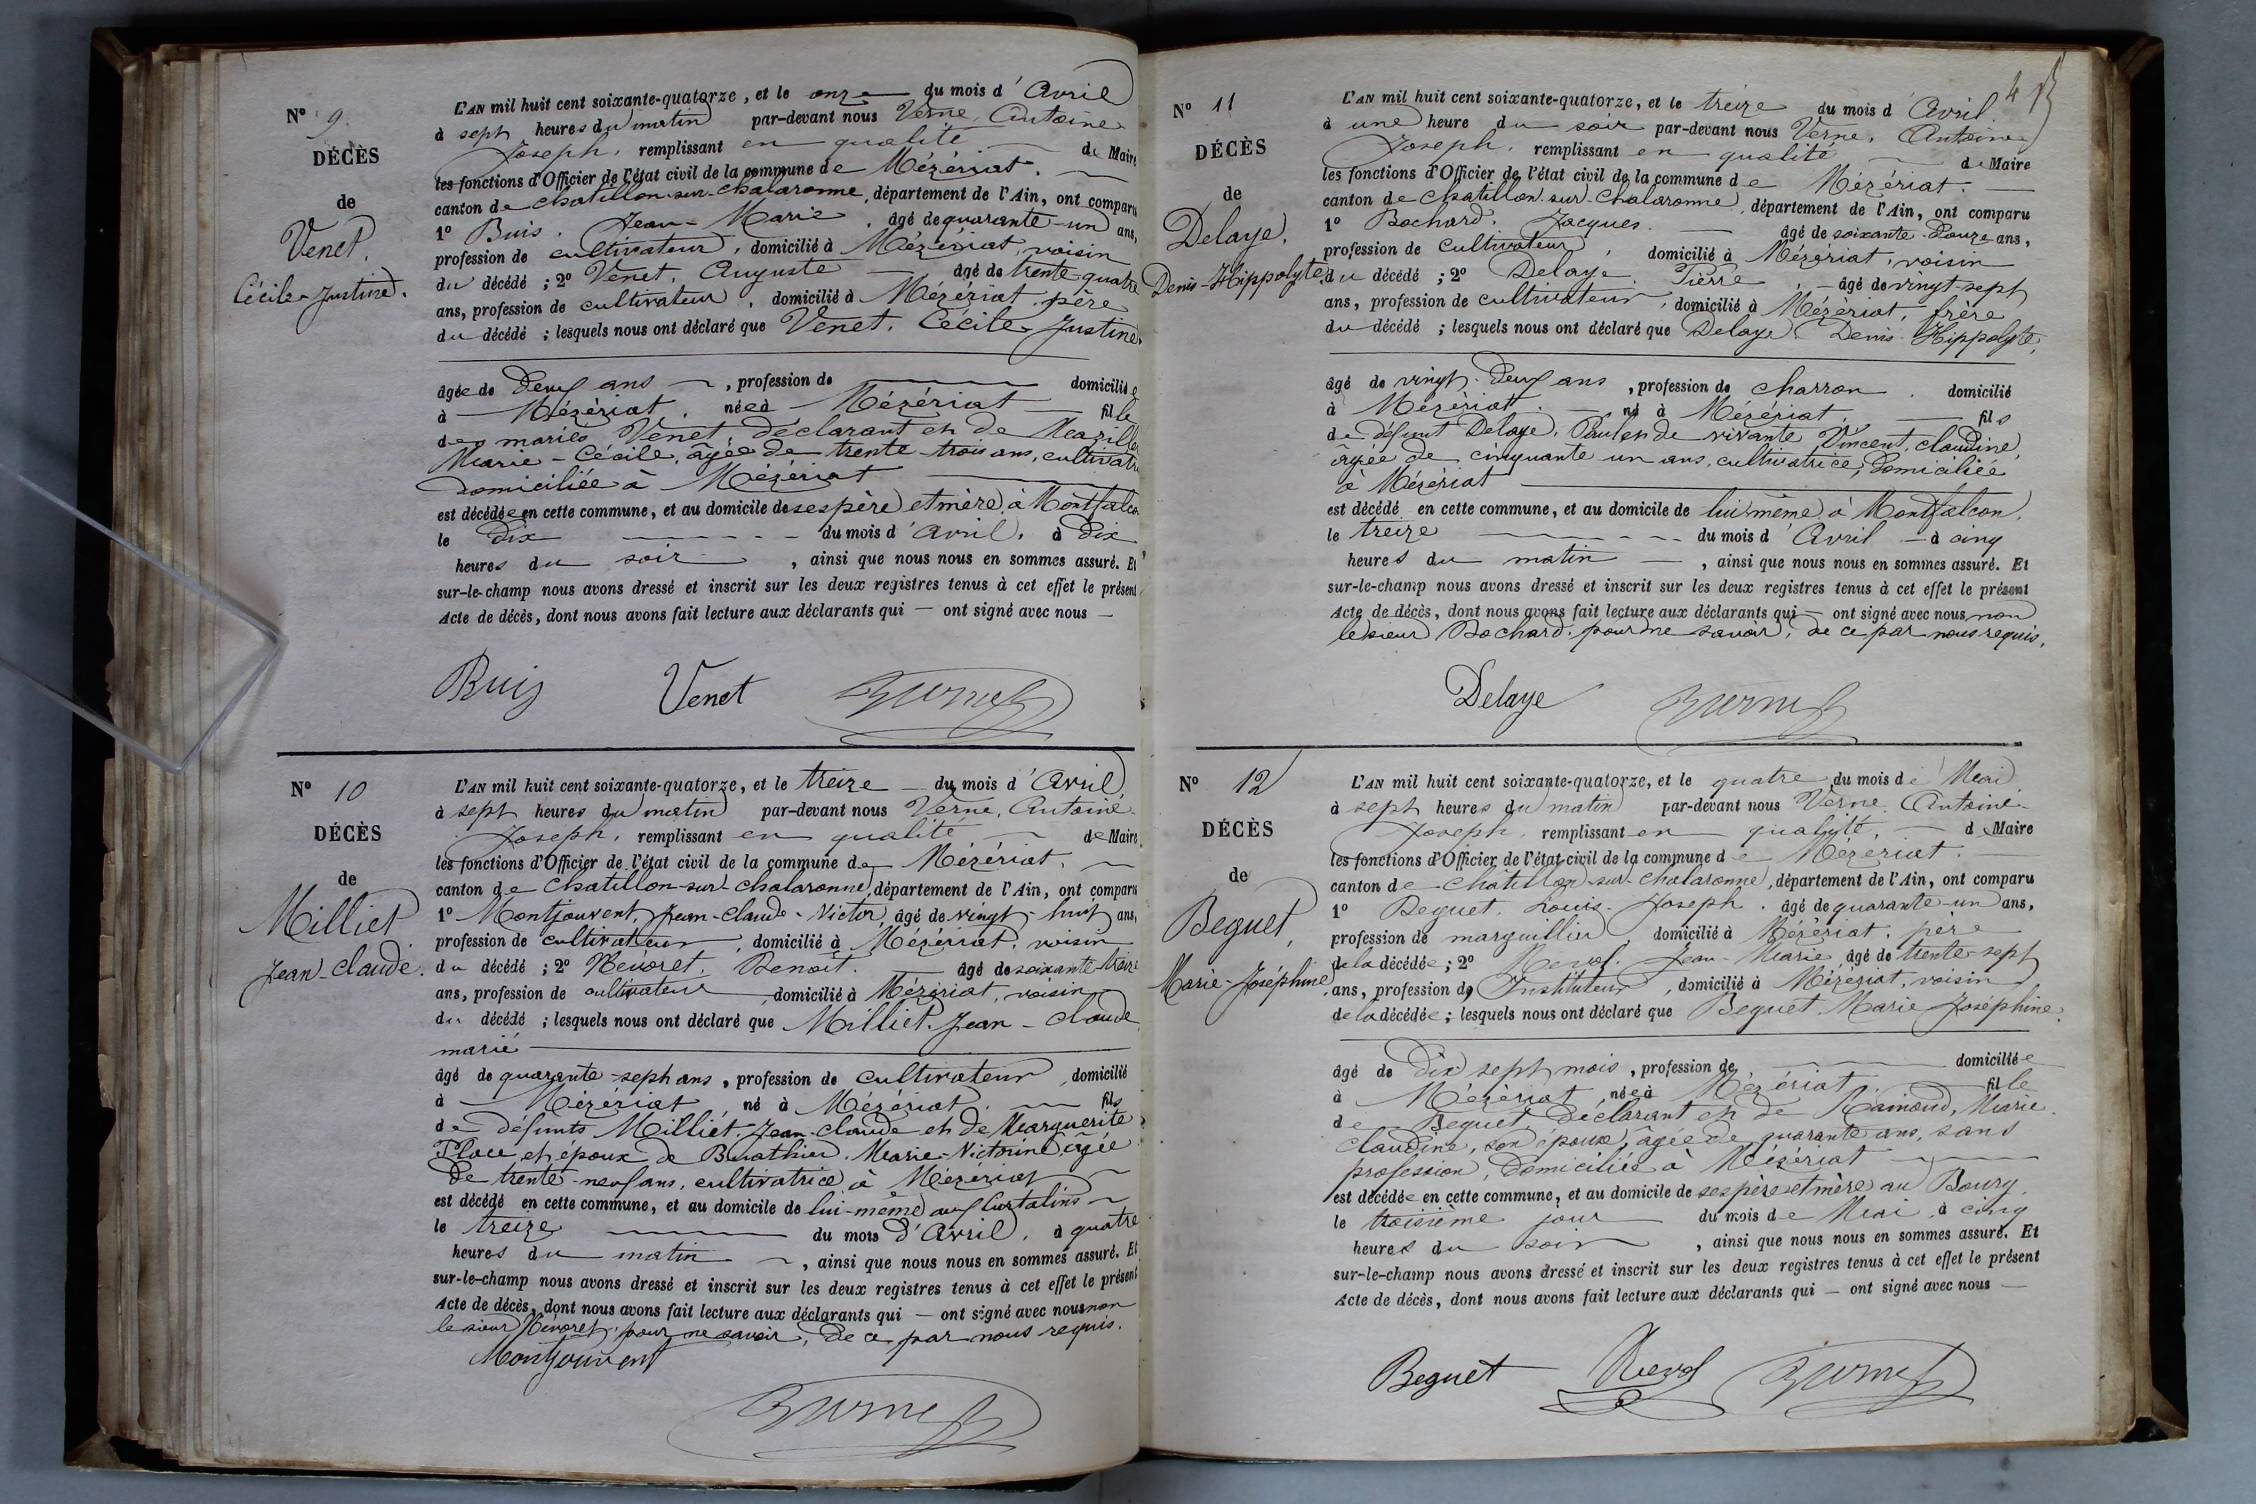 N° 9
DÉCÈS
de
Venet,
Cécile-Justine.
L'AN mil huit cent soixante-quatorze, et le onze du mois d'Avril
à sept heures du matin par-devant nous Verne, Antoine
Joseph, remplissant en qualité de Maire
les fonctions d'Officier de l'état civil de la commune de Mézériat.
canton de Chatillon-sur-Chalaronne, département de l'Ain, ont comparu
1° Buis, Jean-Marie, âgé de quarante-un ans,
profession de cultivateur, domicilié à Mézériat, voisin
du décédé ; 2° Venet, Auguste âgé de trente quatre
ans, profession de cultivateur, domicilié à Mézériat, père
du décédé ; lesquels nous ont déclaré que Venet, Cécile Justine
âgée de Deux ans, profession de domiciliée
à Mézériat, née à Mézériat fille
des mariés Venet, déclarant et de
Marie-Cécile, âgée de trente-trois ans,
domiciliée à Mézériat
est décédée en cette commune, et au domicile de ses père et mère, à Montfalcon
le Dix du mois d'Avril, à Dix
heures du soir, ainsi que nous nous en sommes assuré. Et
sur-le-champ nous avons dressé et inscrit sur les deux registres tenus à cet effet le présent
Acte de décès, dont nous avons fait lecture aux déclarants qui — ont signé avec nous —
Buis Venet Verne
N° 10
DÉCÈS
de
Milliet
Jean-Claude.
L'AN mil huit cent soixante-quatorze, et le treize du mois d'Avril
à sept heures du matin par-devant nous Verne, Antoine
Joseph, remplissant en qualité de Maire
les fonctions d'Officier de l'état civil de la commune de Mézériat,
canton de Chatillon-sur-Chalaronne, département de l'Ain, ont comparu
1° Montjouvent, Jean-Claude-Victor, âgé de vingt-huit ans,
profession de cultivateur, domicilié à Mézériat, voisin
du décédé ; 2° Névoret, Benoît. âgé de soixante treize
ans, profession de cultivateur, domicilié à Mézériat, voisin
du décédé ; lesquels nous ont déclaré que Milliet, Jean-Claude
marié
âgé de quarante-sept ans, profession de cultivateur, domicilié
à Mézériat, né à Mézériat. fils
de défunts Milliet, Jean-Claude et de Marguerite
Place et époux de Buathier, Marie-Victorine, âgée
de trente-neuf ans, cultivatrice à Mézériat
est décédé en cette commune, et au domicile de lui-même aux Curtalins
le treize du mois d'Avril, à quatre
heures du matin, ainsi que nous nous en sommes assuré. Et
sur-le-champ nous avons dressé et inscrit sur les deux registres tenus à cet effet le présent
Acte de décès, dont nous avons fait lecture aux déclarants qui — ont signé avec nous non
le sieur Névoret, pour ne savoir, de ce par nous requis.
Montjouvent
Verne
4
N° 11
DÉCÈS
de
Delaye,
Denis-Hippolyte.
L'AN mil huit cent soixante-quatorze, et le treize du mois d'Avril
à une heure du soir par-devant nous Verne, Antoine
Joseph, remplissant en qualité de Maire
les fonctions d'Officier de l'état civil de la commune de Mézériat.
canton de Chatillon-sur-Chalaronne, département de l'Ain, ont comparu
1° Bochard, Jacques. âgé de soixante-douze ans,
profession de cultivateur, domicilié à Mézériat, voisin
du décédé ; 2° Delaye, Pierre, âgé de vingt-sept
ans, profession de cultivateur, domicilié à Mézériat, frère
du décédé ; lesquels nous ont déclaré que Delaye, Denis-Hippolyte,
âgé de vingt-deux ans, profession de charron, domicilié
à Mézériat, né à Mézériat, fils
de défunt Delaye, Paul et de vivante Vincent, Claudine,
âgée de cinquante un ans, cultivatrice, domiciliée
à Mézériat
est décédé en cette commune, et au domicile de lui-même à Montfalcon,
le treize du mois d'Avril à cinq
heures du matin, ainsi que nous nous en sommes assuré. Et
sur-le-champ nous avons dressé et inscrit sur les deux registres tenus à cet effet le présent
Acte de décès, dont nous avons fait lecture aux déclarants qui — ont signé avec nous non
le sieur Bochard, pour ne savoir, de ce par nous requis.
Delaye Verne
N° 12
DÉCÈS
de
Beguet,
Marie-Joséphine,
L'AN mil huit cent soixante-quatorze, et le quatre du mois de Mai
à sept heures du matin par-devant nous Verne, Antoine
Joseph, remplissant en qualité, de Maire
les fonctions d'Officier de l'état civil de la commune de Mézériat.
canton de Châtillon-sur-Chalaronne, département de l'Ain, ont comparu
1° Beguet, Louis-Joseph, âgé de quarante-un ans,
profession de marguillier, domicilié à Mézériat, père
de la décédée ; 2° Jean-Marie, âgé de trente-sept
ans, profession d'Instituteur, domicilié à Mézériat, voisin
de la décédée ; lesquels nous ont déclaré que Beguet Marie Joséphine,
âgé de Dix sept mois, profession de domiciliée
à Mézériat née à Mézériat fille
de Beguet, déclarant et de Raimond, Marie
Claudine, son épouse, âgée de quarante ans, sans
profession, domiciliée à Mézériat
est décédée en cette commune, et au domicile de ses père et mère au Bourg,
le troisième jour du mois de Mai, à cinq
heures du soir, ainsi que nous nous en sommes assuré. Et
sur-le-champ nous avons dressé et inscrit sur les deux registres tenus à cet effet le présent
Acte de décès, dont nous avons fait lecture aux déclarants qui — ont signé avec nous —
Beguet Verne